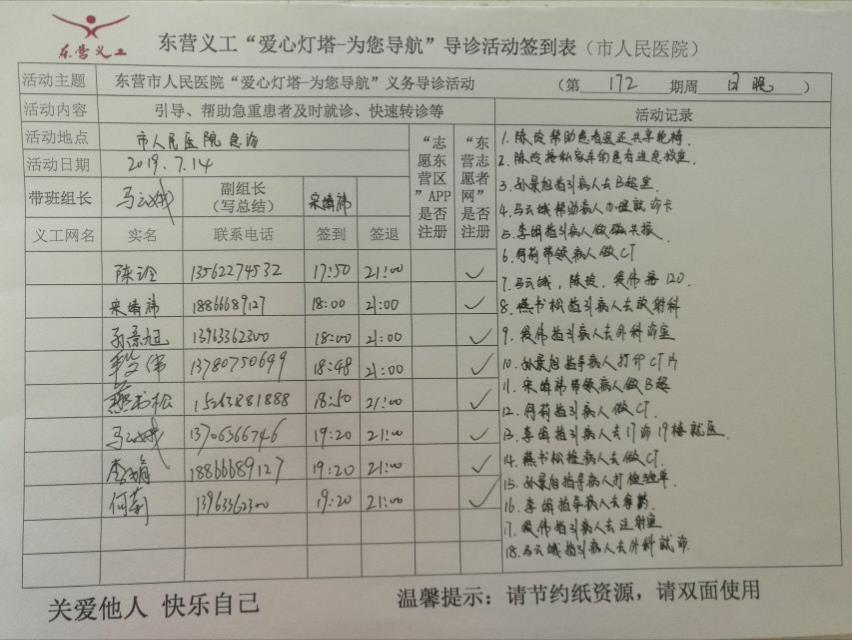 东营义工
东营义工“爱心灯塔-为您导航”导诊活动签到表（市人民医院）
活动主题 东营市人民医院“爱心灯塔-为您导航”义务导诊活动 （第 172 期周 日晚 ）
活动内容 引导、帮助急重患者及时就诊、快速转诊等 活动记录
活动地点 市人民医院急诊
活动日期 2019.7.14
带班组长 马云娥 副组长（写总结） 宋靖祎
“志愿东营区”APP是否注册
“东营志愿者网”是否注册
义工网名 实名 联系电话 签到 签退
陈 13562274532 17:50 21:00 ✓
宋靖祎 18866689127 18:00 21:00 ✓
孙景旭 13963362300 18:00 21:00 ✓
段伟 13780750699 18:48 21:00 ✓
燕书松 18:50 21:00 ✓
马云娥 13706366746 19:20 21:00 ✓
李娟 18866689127 19:20 21:00 ✓
何莉 13963362300 19:20 21:00 ✓
1. 陈 帮助患者送还共享轮椅.
2. 陈 接私家车的患者进急救室.
3. 孙景旭指引病人去B超室.
4. 马云娥帮助病人办理就诊卡
5. 李娟指引病人做磁共振.
6. 何莉带领病人做CT
7. 马云娥, 陈 , 段伟 120.
8. 燕书松指引病人去放射科
9. 段伟指引病人去外科诊室
10. 孙景旭指导病人打印CT片
11. 宋靖祎带领病人做B超
12. 何莉指引病人做CT.
13. 李娟指引病人去门诊19楼就医.
14. 燕书松 病人去做CT.
15. 孙景旭指导病人打 单.
16. 李娟指导病人去拿药
17. 段伟指引病人去注射室
18. 马云娥指引病人去外科就诊
关爱他人 快乐自己
温馨提示：请节约纸资源，请双面使用